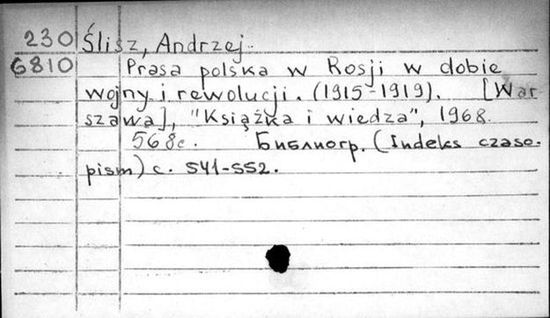 230 Ślisz, Andrzej.
6810 Prasa polska w Rosji w dobie
wojny i rewolucji. (1915-1919). [War
szawa], "Książka i wiedza", 1968.
568с. Библиогр. (Indeks czaso-
pism) с. 541-552.